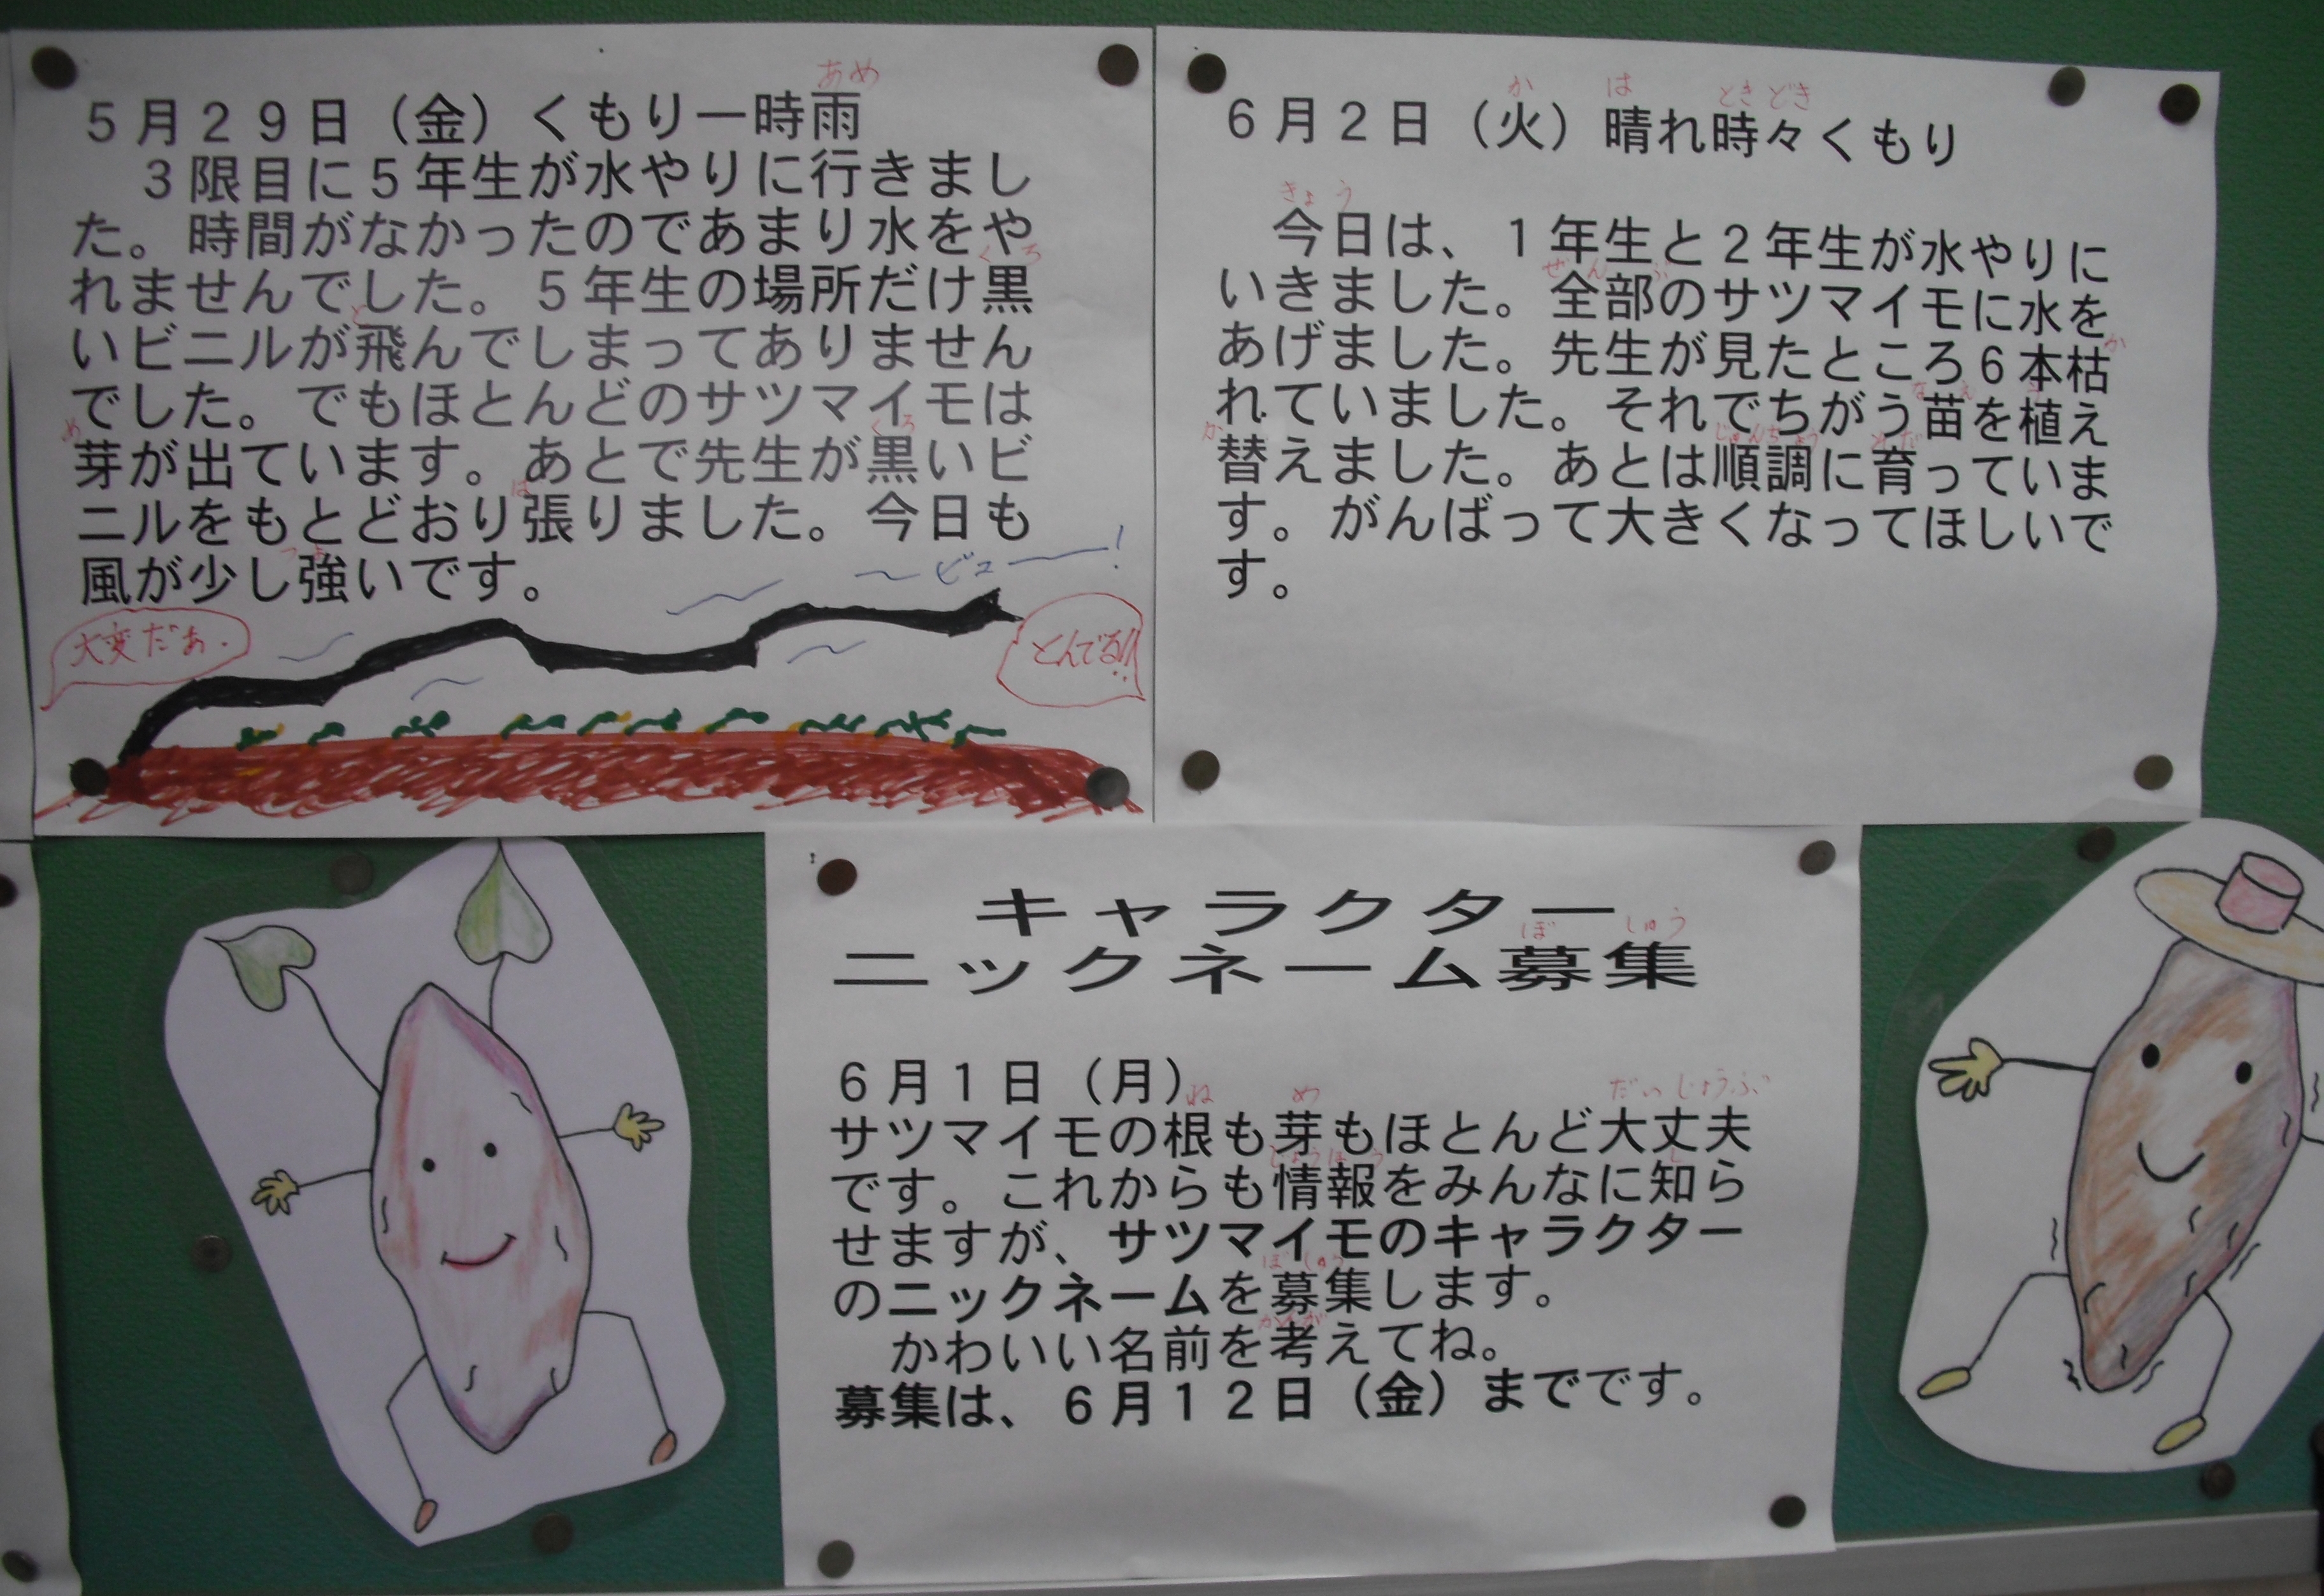 あめ
５月２９日（金）くもり一時雨
３限目に５年生が水やりに行きまし
た。時間がなかったのであまり水をや
くろ
れませんでした。５年生の場所だけ黒
と
いビニルが飛んでしまってありません
でした。でもほとんどのサツマイモは
め くろ
芽が出ています。あとで先生が黒いビ
は
ニルをもとどおり張りました。今日も
つよ
風が少し強いです。
〜ビュー！
大変だぁ.
とんでる!!
か は ときどき
６月２日（火）晴れ時々くもり
きょう
今日は、１年生と２年生が水やりに
ぜんぶ
いきました。全部のサツマイモに水を
か
あげました。先生が見たところ６本枯
なえ う
れていました。それでちがう苗を植え
か じゅんちょう そだ
替えました。あとは順調に育っていま
す。がんばって大きくなってほしいで
す。
キャラクター
ぼ しゅう
ニックネーム募集
６月１日（月）
ね め だいじょうぶ
サツマイモの根も芽もほとんど大丈夫
じょうほう し
です。これからも情報をみんなに知ら
せますが、サツマイモのキャラクター
ぼ しゅう
のニックネームを募集します。
かんが
かわいい名前を考えてね。
募集は、６月１２日（金）までです。